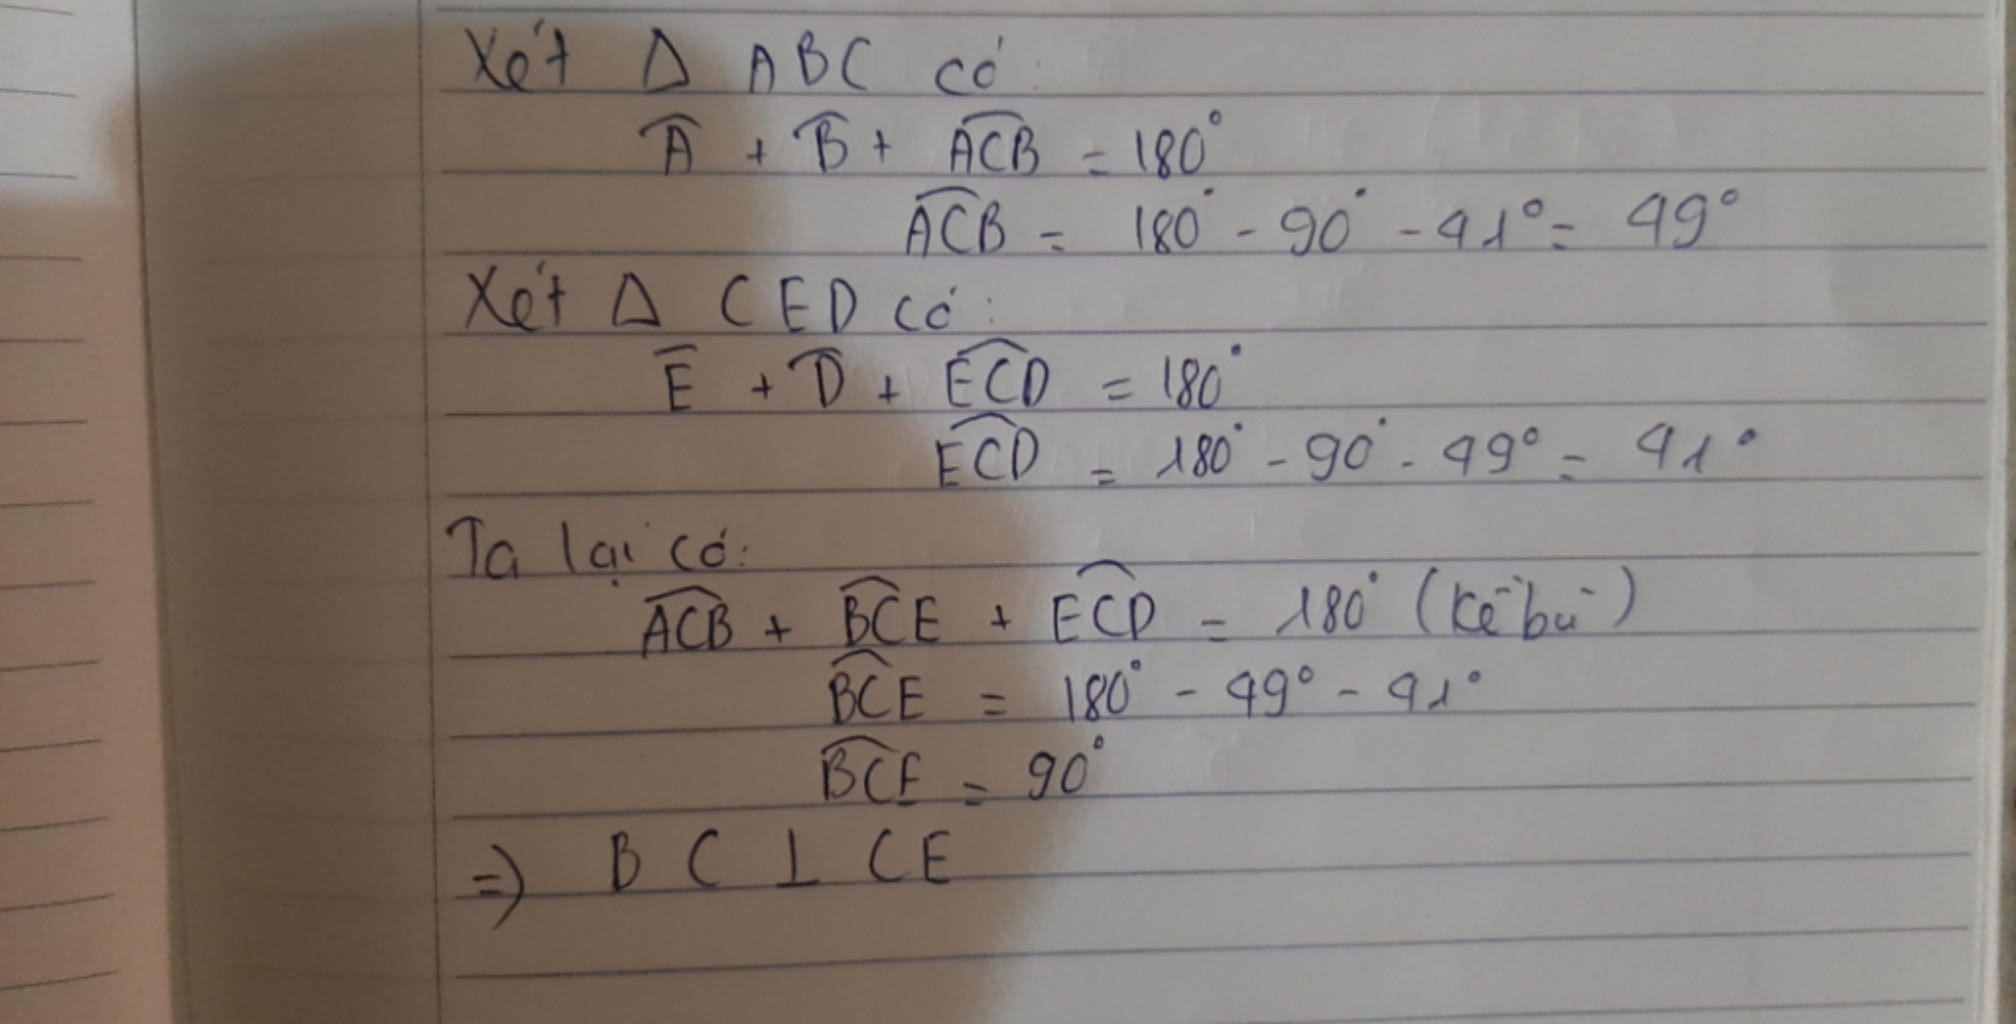 Xét Δ ABC có:
Â + B̂ + ACB̂ = 180°
ACB̂ = 180° - 90° - 41° = 49°
Xét Δ CED có:
Ê + D̂ + ECD̂ = 180°
ECD̂ = 180° - 90° - 49° = 41°
Ta lại có:
ACB̂ + BCÊ + ECD̂ = 180° (kề bù)
BCÊ = 180° - 49° - 41°
BCÊ = 90°
=> BC ⊥ CE